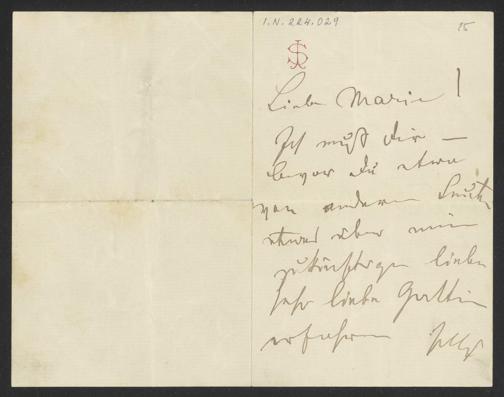 I.N. 224.029
15
JS
Liebe Marie!
Ich muß dir —
bevor du etwa
von anderen Leuten
etwas über meine
zukünftige liebe
sehr liebe Gattin
erfahren selbst